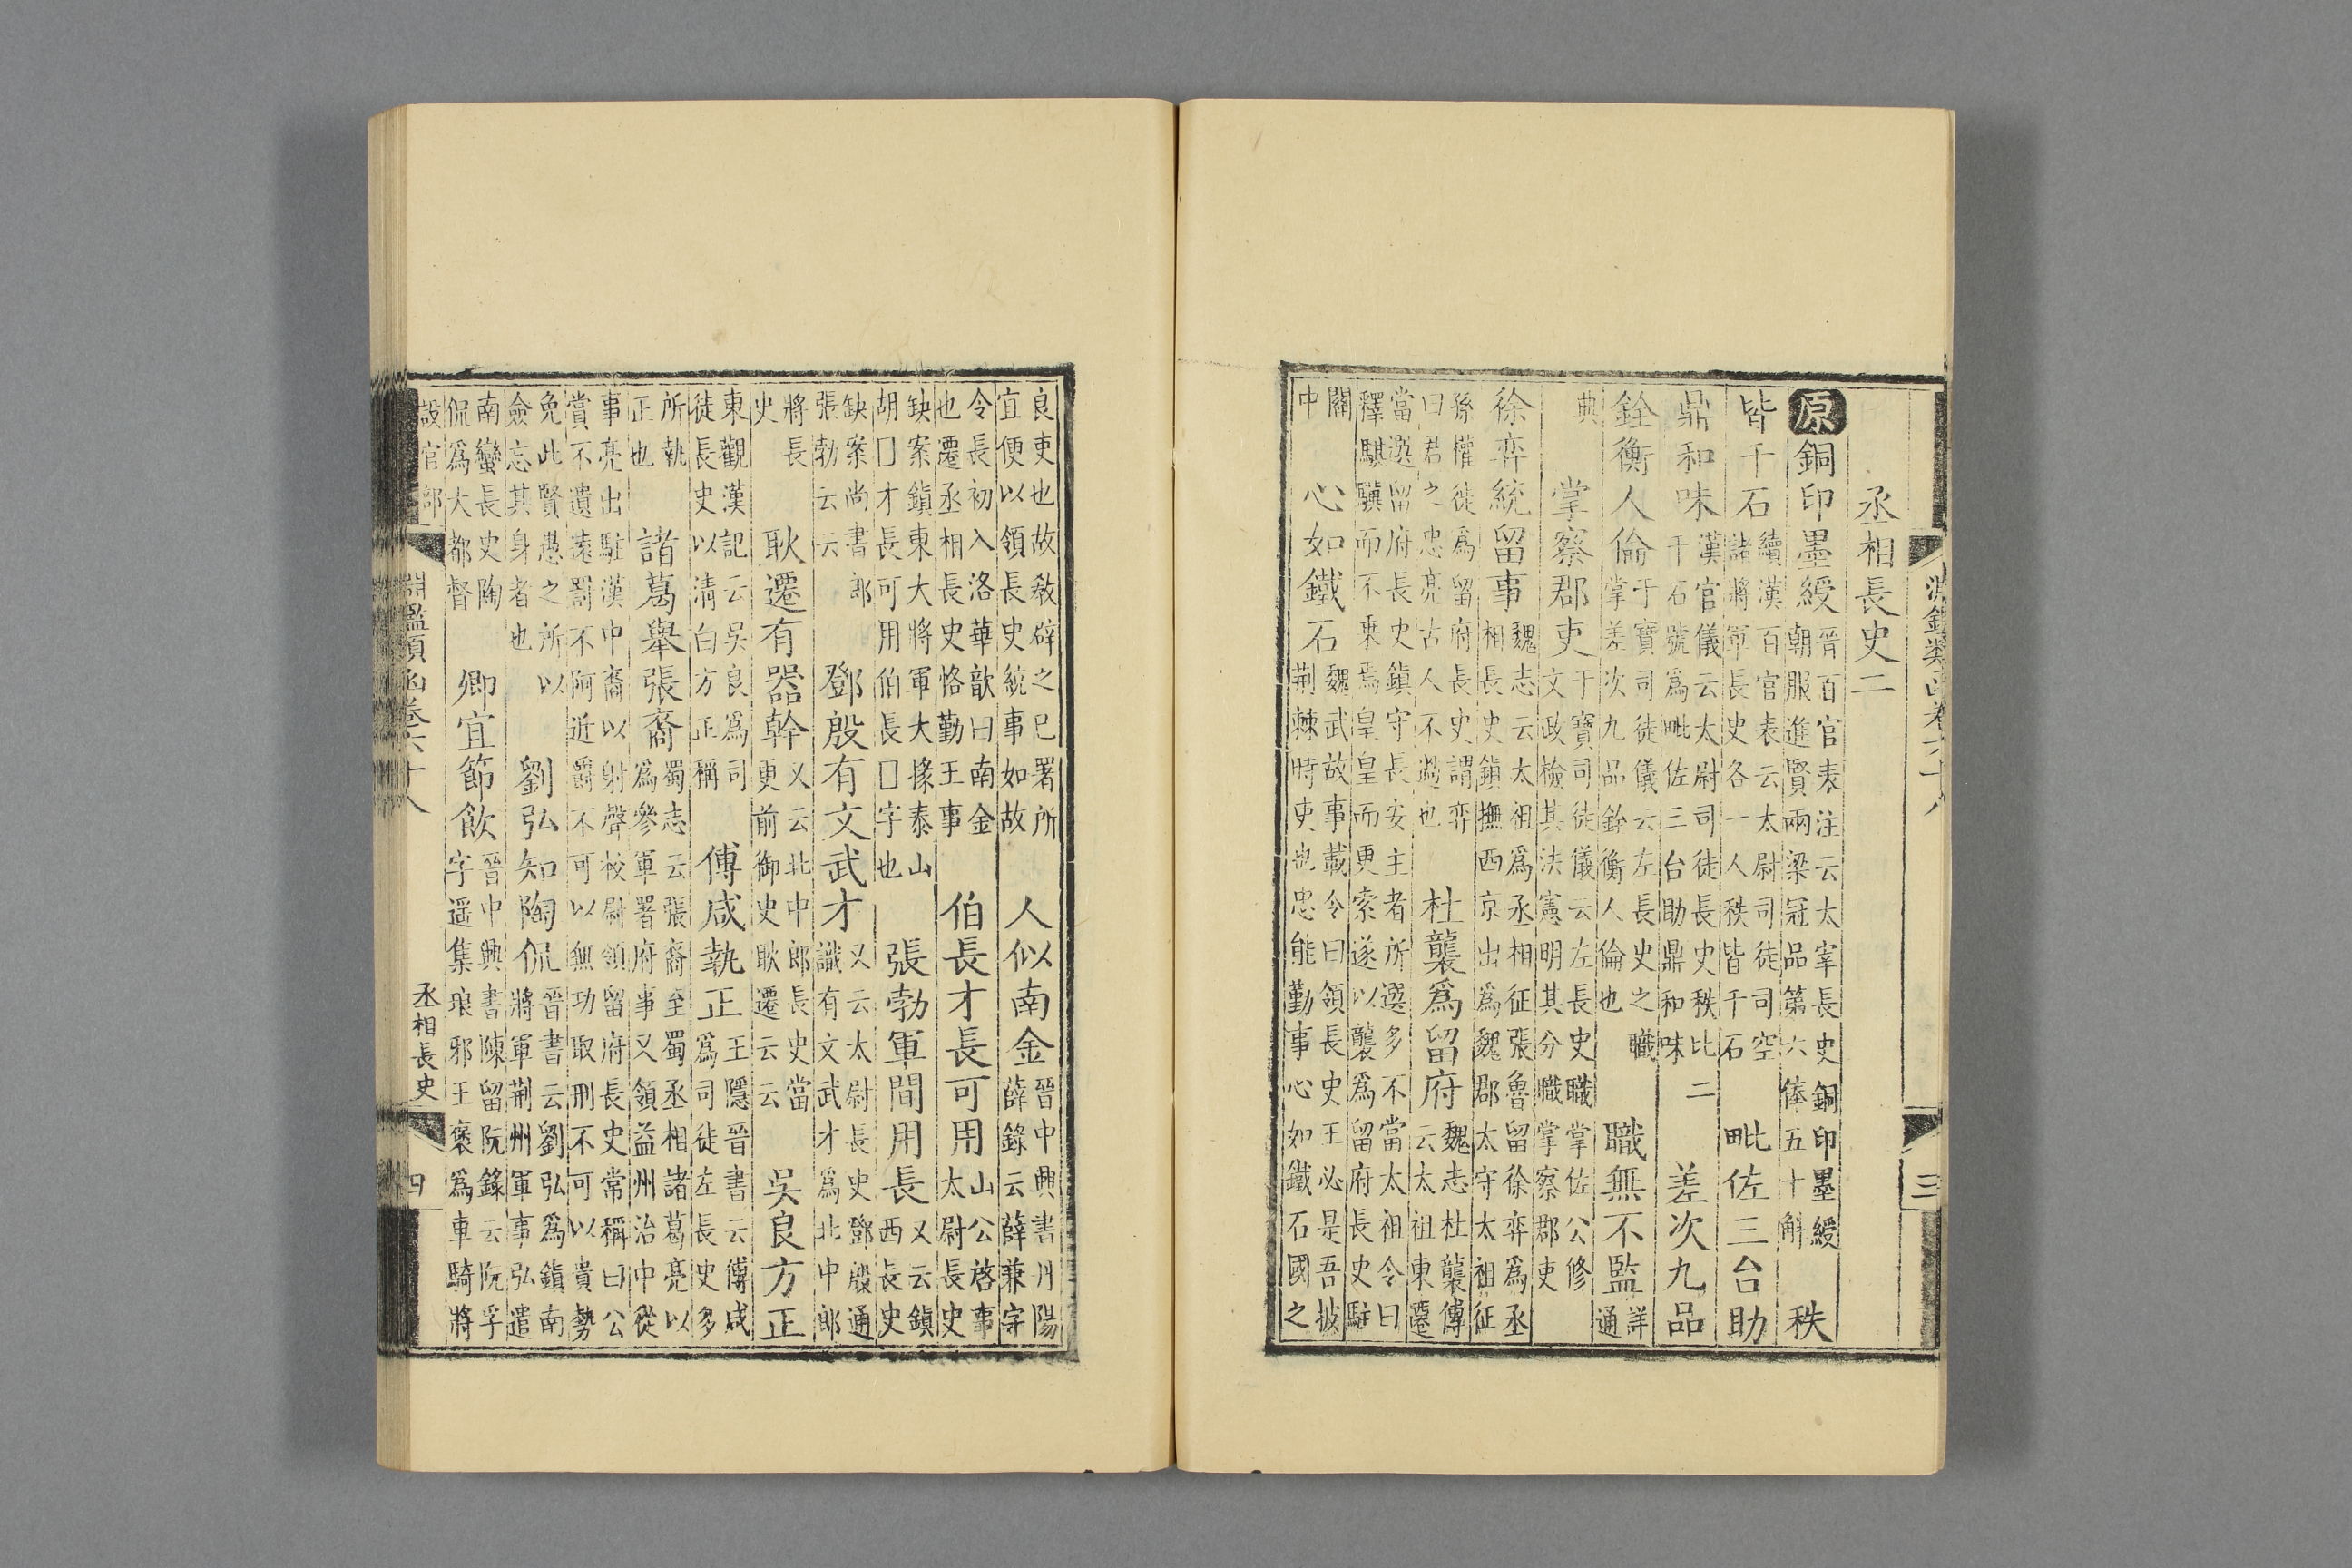 淵鑑類函卷六十八 三
丞相長史二
原銅印墨綬
晉百官表注云太宰長史銅印墨綬
朝服進賢兩梁冠品第六俸五十斛
秩
皆千石
續漢百官表云太尉司徒司空
諸將軍長史各一人秩皆千石
毗佐三台助
鼎和味
漢官儀云太尉司徒長史秩比二
千石號爲毗佐三台助鼎和味
差次九品
銓衡人倫
于寶司徒儀云左長史之職
掌差次九品銓衡人倫也
職無不監
詳
通
典
掌察郡吏
于寶司徒儀云左長史職掌佐公修
文政檢其法憲明其分職掌察郡吏
徐弈統留事
魏志云太祖爲丞相征張魯留徐弈爲丞
相長史鎮撫西京出爲魏郡太守太祖征
孫權徙爲留府長史謂弈
曰君之忠亮古人不過也
杜襲爲留府
魏志杜襲傳
云太祖東還
當選留府長史鎮守長安主者所選多不當太祖令曰
釋騏驥而不乗焉皇皇而更索遂以襲爲留府長史駐
關
中
心如鐵石
魏武故事載令曰領長史王必是吾披
荆棘時吏也忠能勤事心如鐵石國之
良吏也故敎辟之已署所
宜便以領長史統事如故
人似南金
晉中興書丹陽
薛錄云薛兼字
令長初入洛華歆曰南金
也遷丞相長史恪勤王事
伯長才長可用
山公啓事
太尉長史
缺案鎮東大將軍大掾泰山
胡囗才長可用伯長囗字也
張勃軍間用長
又云鎮
西長史
缺案尚書郎
張勃云云
鄧殷有文武才
又云太尉長史鄧殷通
識有文武才爲北中郎
將長
史
耿遷有器幹
又云北中郎長史當
更前御史耿遷云云
吳良方正
東觀漢記云吳良爲司
徒長史以清白方正稱
傅咸執正
王隱晉書云傅咸
爲司徒左長史多
所執
正也
諸葛舉張裔
蜀志云張裔至蜀丞相諸葛亮以
爲參軍署府事又領益州治中從
事亮出駐漢中裔以射聲校尉領留府長史常稱曰公
賞不遺遠罰不阿近爵不可以無功取刑不可以貴勢
免此賢愚之所以
僉忘其身者也
劉弘知陶侃
晉書云劉弘爲鎮南
將軍荆州軍事弘遣
南蠻長史陶
侃爲大都督
卿宜節飲
晉中興書陳留阮錄云阮孚
字遥集琅邪王裒爲車騎將
設官部 淵鑑類函卷六十八 丞相長史 四